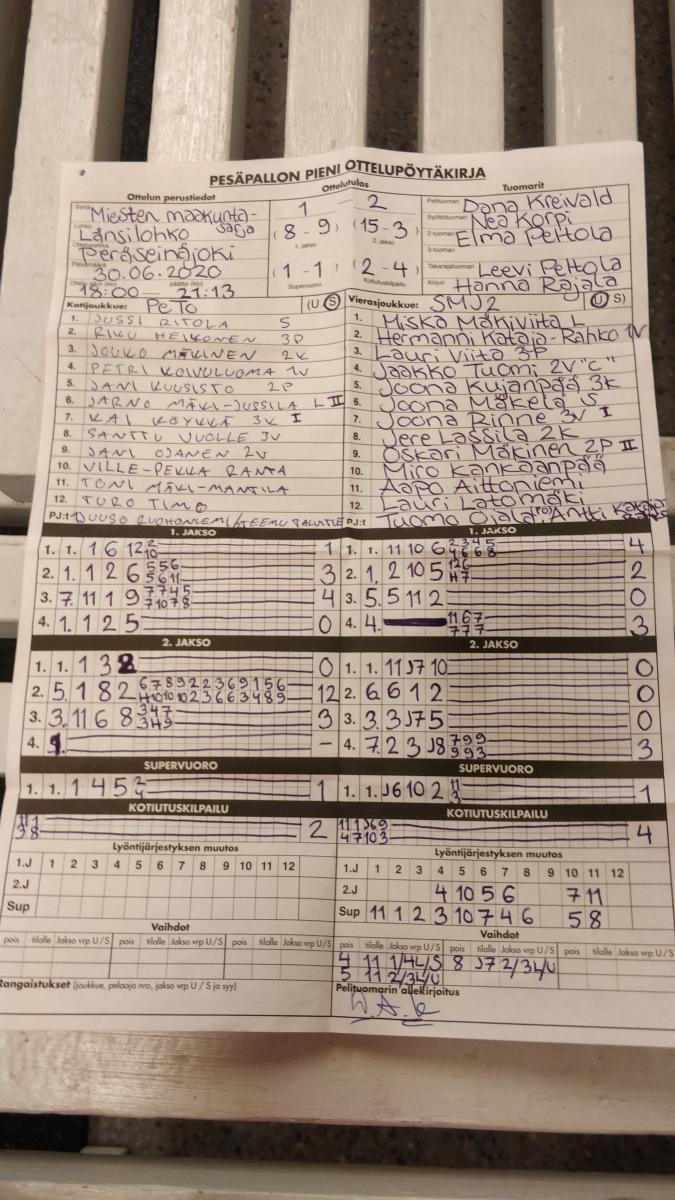 PESÄPALLON PIENI OTTELUPÖYTÄKIRJA
Ottelun perustiedot
Ottelutulos
Tuomarit
Sarja Miesten maakunta-
sarja
Lohko Länsilohko
Peräseinäjoki
Päivämäärä 30.06.2020
18:00 — 21:13
1 - 2
(8 - 9) (15 - 3)
1. jakso 2. jakso
(1 - 1) (2 - 4)
Supervuoro Kotiutuskilpailu
Pelituomari Dana Kreivald
Syöttötuomari Nea Korpi
2-tuomari Elma Peltola
3-tuomari
Takarajatuomari Leevi Peltola
Kirjuri Hanna Rajala
Kotijoukkue: PeTo (U S)
1. JUSSI RITOLA S
2. RIKU HEIKONEN 3P
3. JOUKO MÄKINEN 2K
4. PETRI KOIVULUOMA 1V
5. JANI KUUSISTO 2P
6. JARNO MÄKI-JUSSILA L II
7. KAI KÖYKKÄ 3K I
8. SANTTU VUOLLE 3V
9. JANI OJANEN 2V
10. VILLE-PEKKA RANTA
11. TONI MÄKI-MANTILA
12. TURO TIMO
PJ:t
Vierasjoukkue: SMJ2 (U S)
1. Miska Mäkiviita L
2. Hermanni Kataja-Rahko 1V
3. Lauri Viita 3P
4. Jaakko Tuomi 2V "C"
5. Joona Kujanpää 3K
6. Joona Mäkelä S
7. Joona Rinne 3V I
8. Jere Lassila 2K
9. Oskari Mäkinen 2P II
10. Miro Kankaanpää
11. Aapo Aittoniemi
12. Lauri Latomäki
PJ:t Tuomo Ojala, Antti
1. JAKSO
1. 1. 1 6 12 2 10 1
2. 1. 1 2 6 5 5 6 5 6 11 3
3. 7. 11 1 9 7 7 4 5 7 10 7 8 4
4. 1. 1 2 5 0
1. JAKSO
1. 1. 11 10 6 2 3 4 5 4 6 6 8 4
2. 1. 2 10 5 1 2 6 H 7 2
3. 5. 5 11 2 0
4. 4. 11 6 7 7 7 7 3
2. JAKSO
1. 1. 1 3 2 0
2. 5. 1 8 2 6 7 8 9 2 2 3 6 9 1 5 6 H 10 10 10 2 3 6 6 3 4 8 9 12
3. 3. 11 6 8 3 4 7 3 H 9 3
4. –
2. JAKSO
1. 1. 11 J7 10 0
2. 6. 6 1 2 0
3. 3. 3 J7 5 0
4. 7. 2 3 J8 7 9 9 9 9 3 3
SUPERVUORO
1. 1. 1 4 5 2 4 1
SUPERVUORO
1. 1. J6 10 2 11 3 1
KOTIUTUSKILPAILU
2
KOTIUTUSKILPAILU
11 1 J6 9
4 7 10 3 4
Lyöntijärjestyksen muutos
1.J 1 2 3 4 5 6 7 8 9 10 11 12
2.J
Sup
Lyöntijärjestyksen muutos
1.J 1 2 3 4 5 6 7 8 9 10 11 12
2.J 4 10 5 6 7 11
Sup 11 1 2 3 10 7 4 6 5 8
Vaihdot
pois tilalle Jakso vrp U/S pois tilalle Jakso vrp U/S pois tilalle Jakso vrp U/S
Vaihdot
pois tilalle Jakso vrp U/S pois tilalle Jakso vrp U/S pois tilalle Jakso vrp U/S
4 11 1/4L/S 8 J7 2/3L/U
5 11 2/3L/U
Rangaistukset (joukkue, pelaaja nro, jakso vrp U / S ja syy)
Pelituomarin allekirjoitus